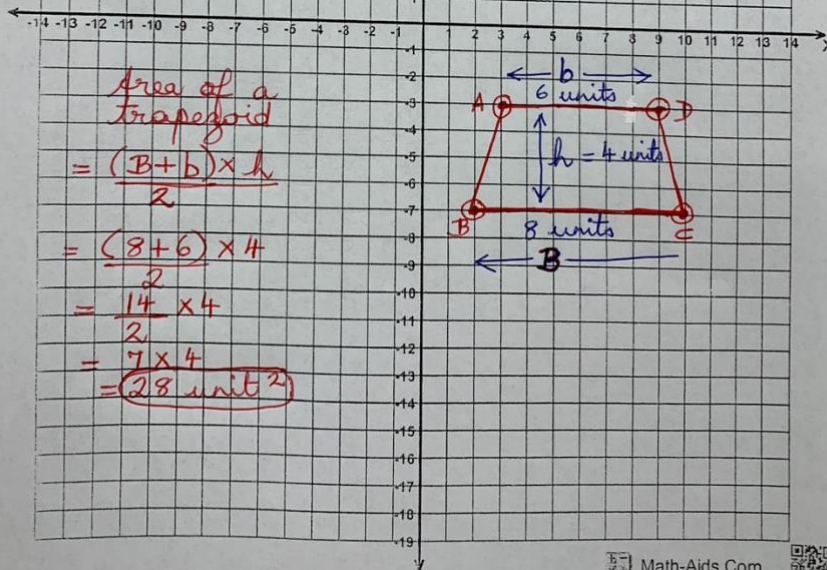 -14 -13 -12 -11 -10 -9 -8 -7 -6 -5 -4 -3 -2 -1 1 2 3 4 5 6 7 8 9 10 11 12 13 14
-1
-2
-3
-4
-5
-6
-7
-8
-9
-10
-11
-12
-13
-14
-15
-16
-17
-18
-19
Area of a
trapezoid
= (B+b) × h
2
= (8+6) × 4
2
= 14 × 4
2
= 7 × 4
= 28 unit²
b
6 units
A D
h = 4 units
B C
8 units
B
Math-Aids.Com